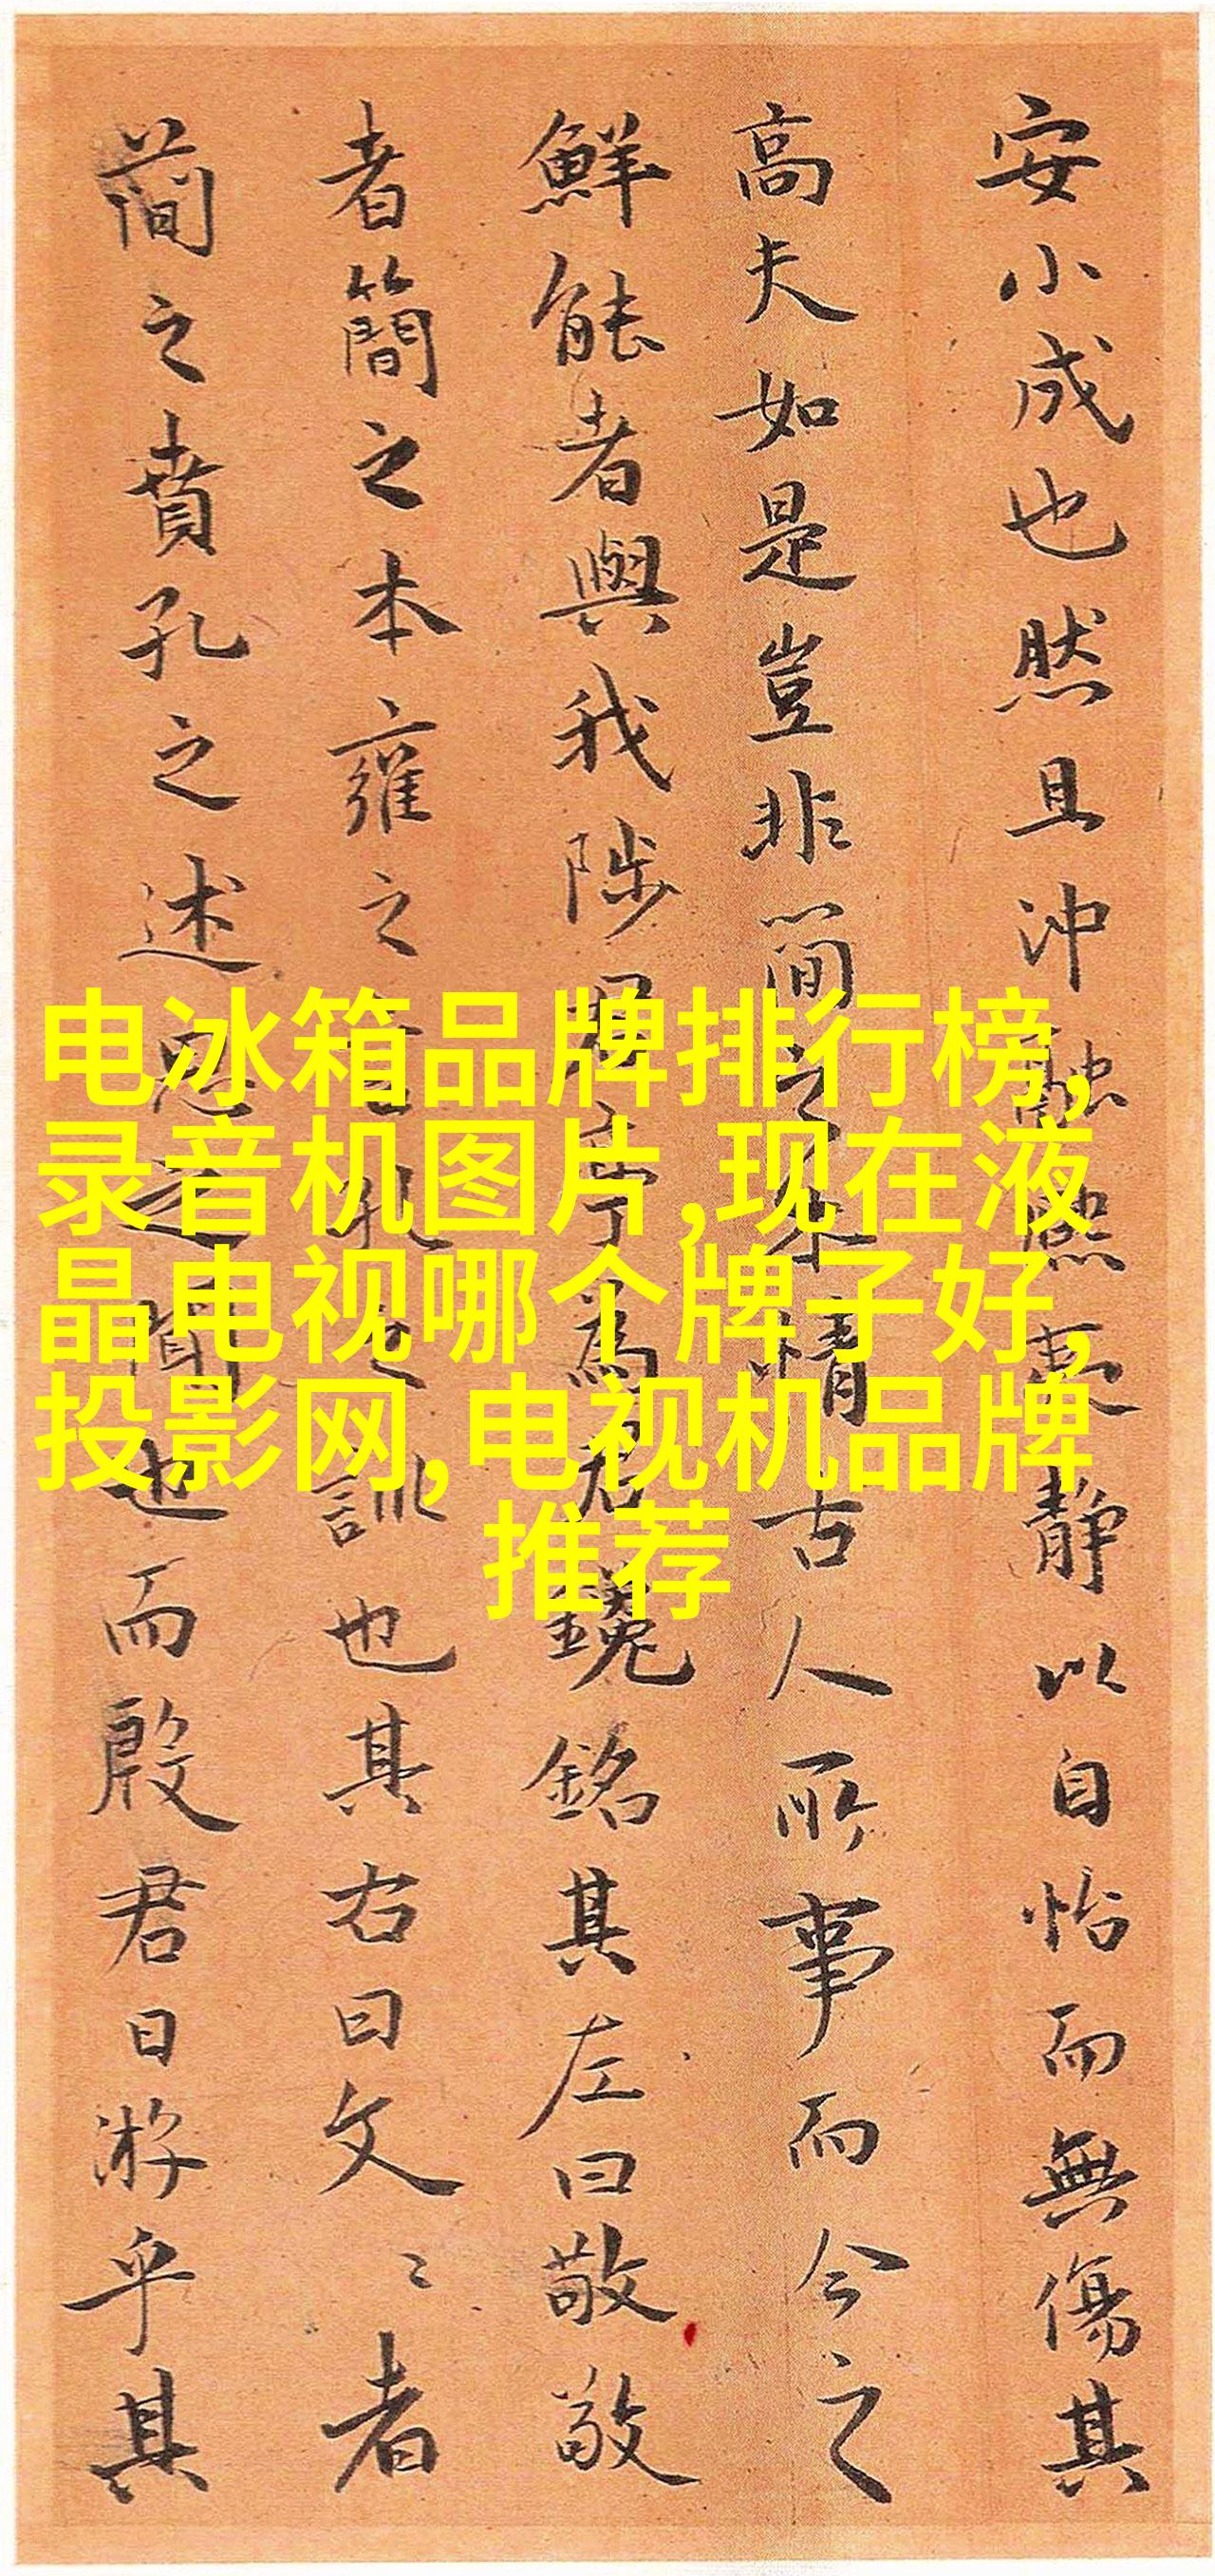 安小成也然且沖融熙夷静以自怡而無傷其
高夫如是豈非簡之本情古人所事而今之
鮮能者與我陟君亭為君鑱銘其左曰敬敬
者簡之本雍之言孔之訓也其右曰文〻者
簡之賁孔之述思之聞也而殷君日游乎其
电冰箱品牌排行榜,
录音机图片,现在液
晶电视哪个牌子好,
投影网,电视机品牌
推荐